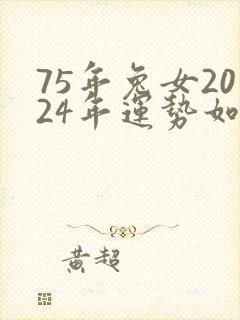 75年兔女20
24年運勢如
黃超